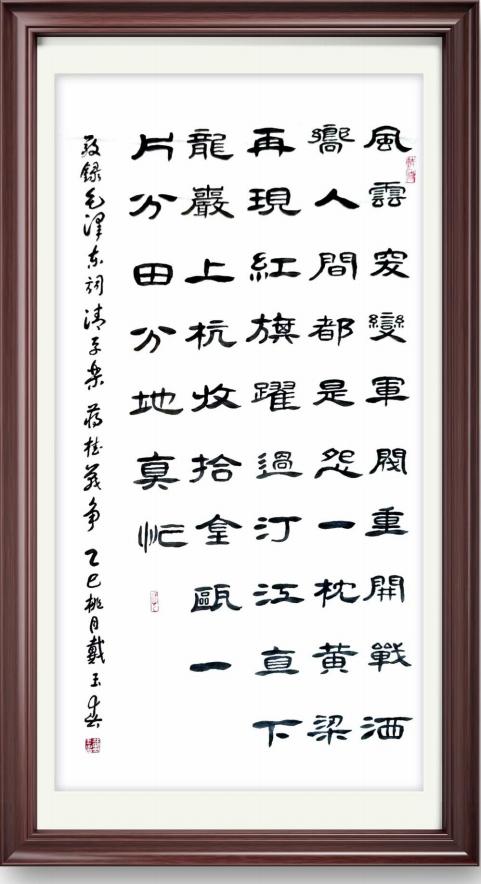 風雲突變軍閥重開戰洒
嚮人間都是怨一枕黄梁
再現紅旗躍過汀江直下
龍巖上杭收拾金甌一
片分田分地真忙
敬録毛泽东词清平乐蒋桂战争乙巳桃月戴玉春